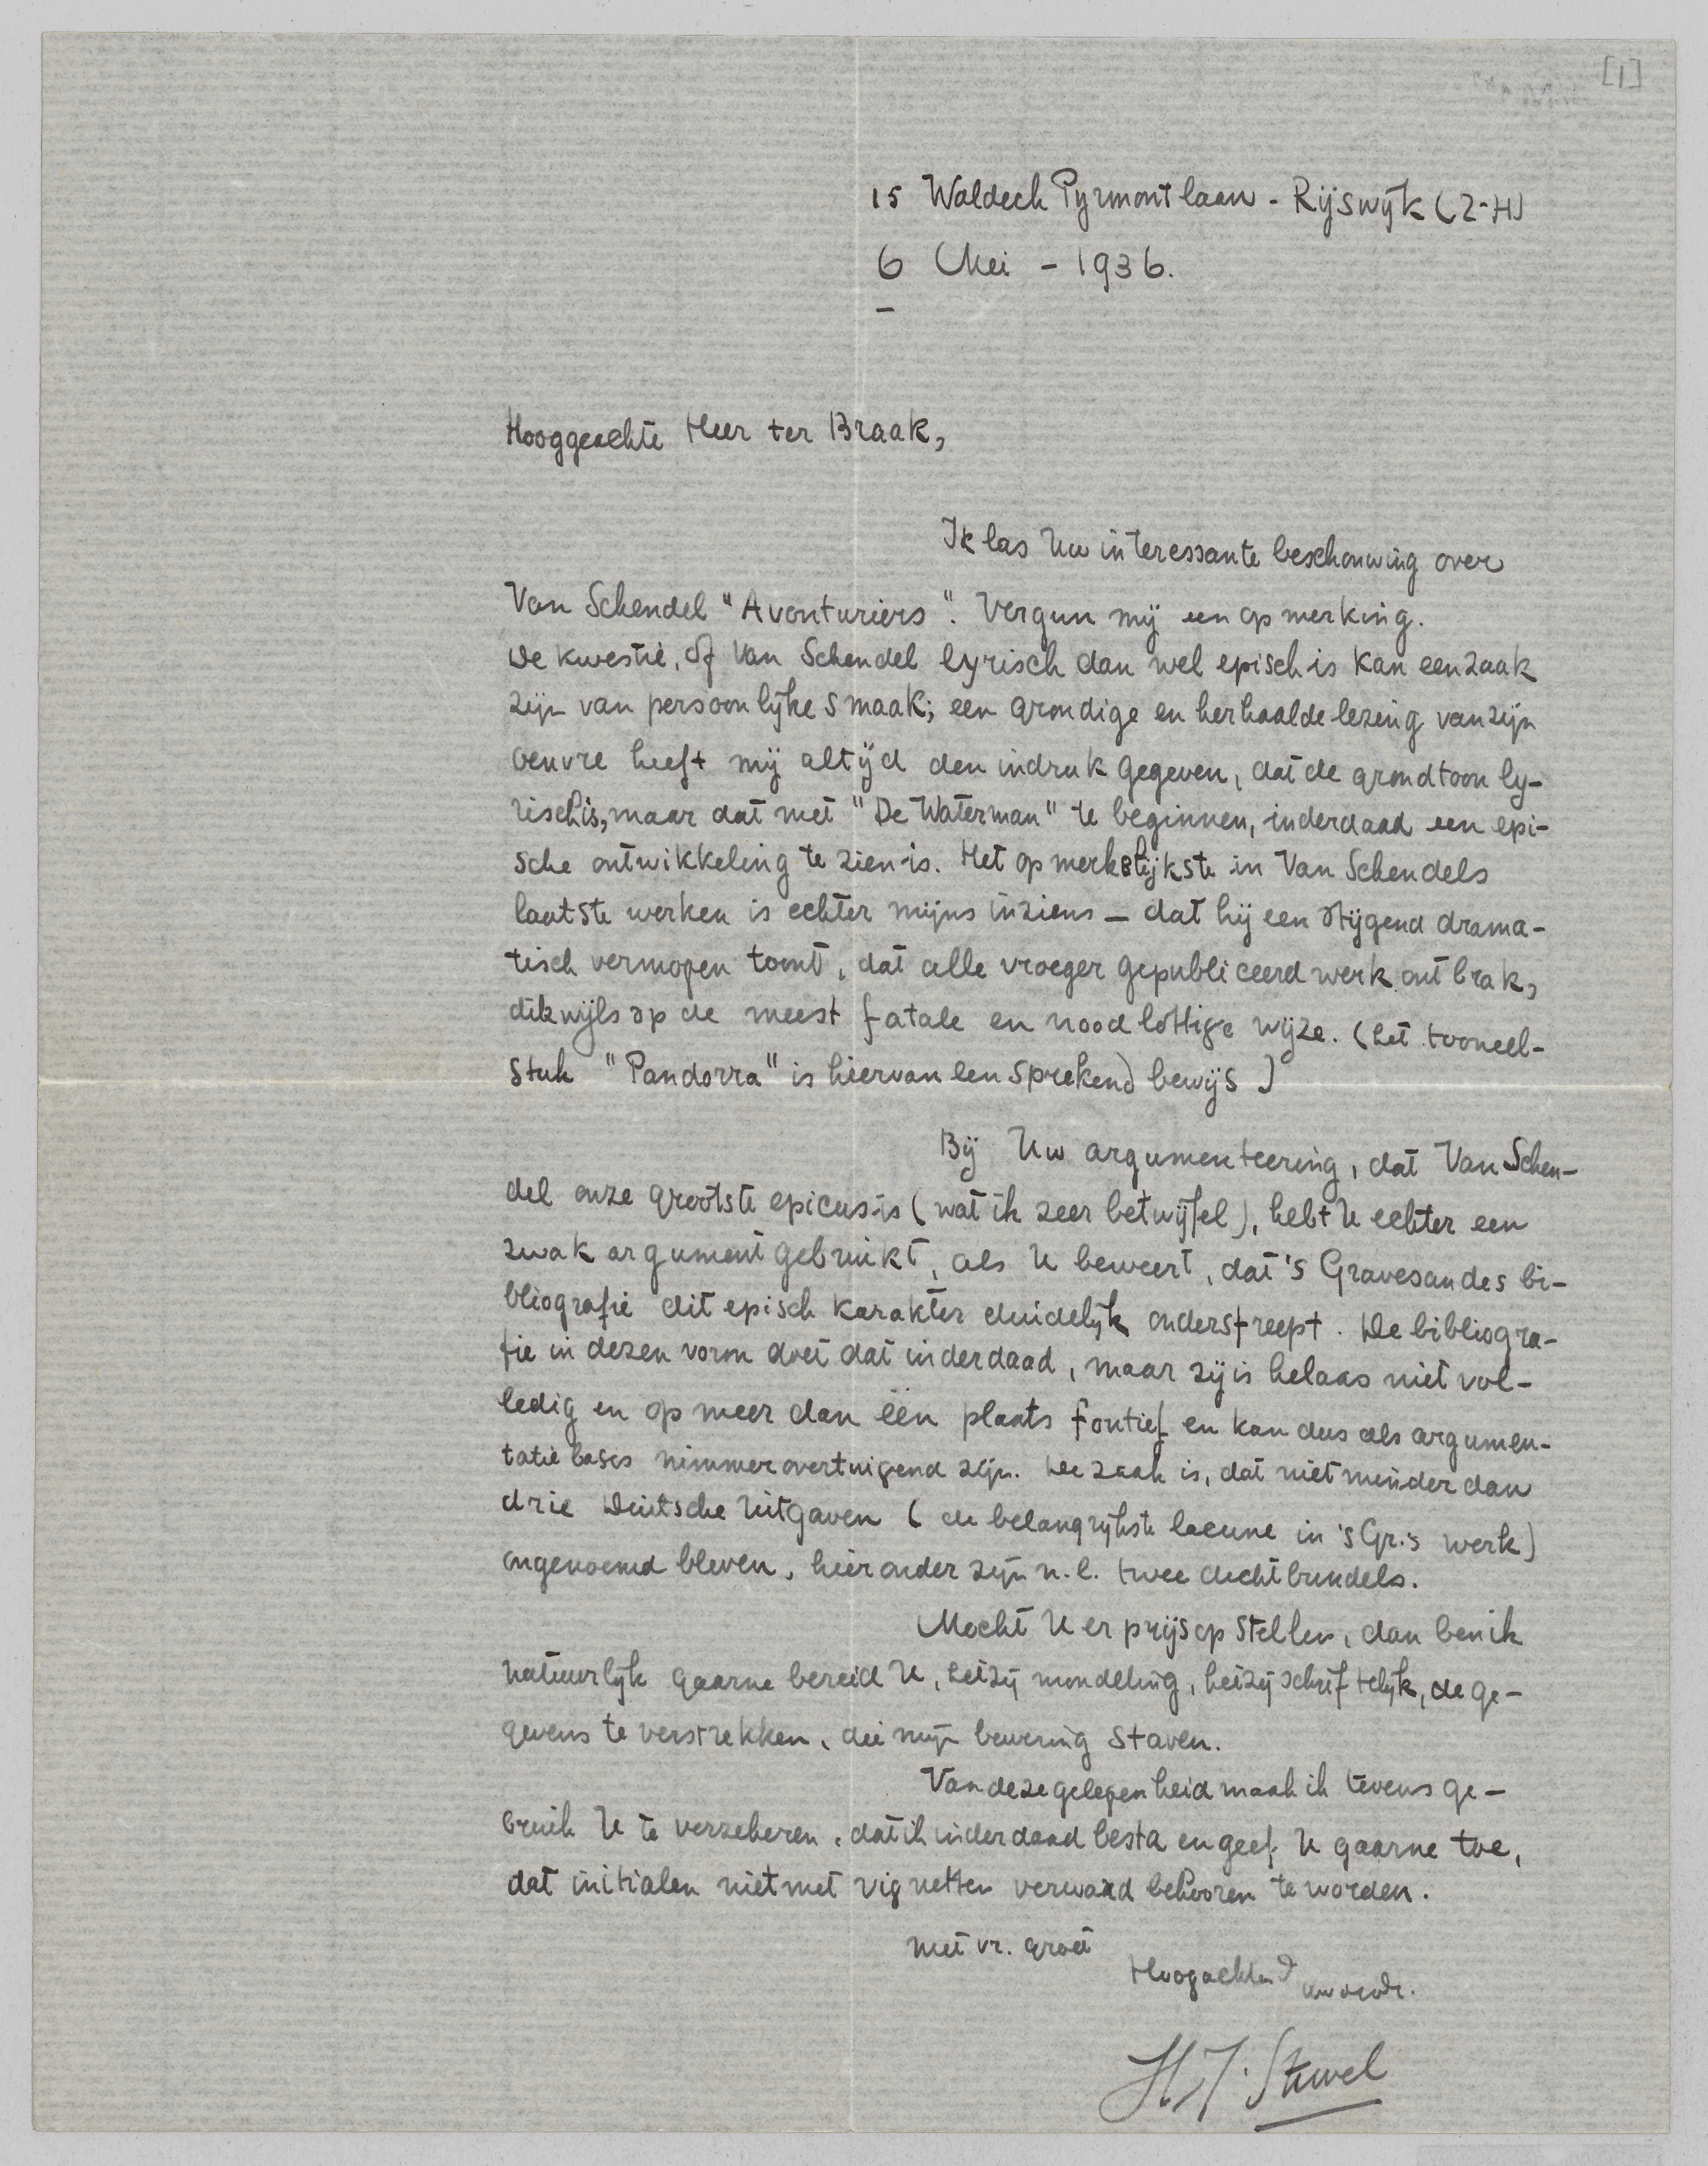 [1]
15 Waldeck Pyrmontlaan - Rijswijk (Z-H)
6 Mei - 1936.
Hooggeachte Heer ter Braak,
Ik las Uw interessante beschouwing over
Van Schendel "Avonturiers". Vergun mij een opmerking.
De kwestie, of Van Schendel lyrisch dan wel episch is kan een zaak
zijn van persoonlijke smaak; een grondige en herhaalde lezing van zijn
oeuvre heeft mij altijd den indruk gegeven, dat de grondtoon ly-
risch is, maar dat met "De Waterman" te beginnen, inderdaad een epi-
sche ontwikkeling te zien is. Het opmerkelijkste in Van Schendels
laatste werken is echter mijns inziens - dat hij een stijgend drama-
tisch vermogen toont, dat alle vroeger gepubliceerd werk ontbrak,
dikwijls op de meest fatale en noodlottige wijze. (het tooneel-
stuk "Pandorra" is hiervan een sprekend bewijs)
Bij Uw argumenteering, dat Van Schen-
del onze grootste epicus is (wat ik zeer betwijfel), hebt U echter een
zwak argument gebruikt, als U beweert, dat 's Gravesandes bi-
bliografie dit episch karakter duidelijk onderstreept. De bibliogra-
fie in dezen vorm doet dat inderdaad, maar zij is helaas niet vol-
ledig en op meer dan één plaats foutief en kan dus als argumen-
tatie basis nimmer overtuigend zijn. De zaak is, dat niet minder dan
drie Duitsche uitgaven (de belangrijkste lacune in 's Gr.'s werk)
ongenoemd bleven, hieronder zijn n.l. twee dichtbundels.
Mocht U er prijs op stellen, dan ben ik
natuurlijk gaarne bereid U, hetzij mondeling, hetzij schriftelijk, de ge-
gevens te verstrekken, die mijn bewering staven.
Van deze gelegenheid maak ik tevens ge-
bruik U te verzekeren, dat ik inderdaad besta en geef U gaarne toe,
dat initialen niet met vignetten verward behooren te worden.
met vr. groet
Hoogachtend
H.J. Stuvel